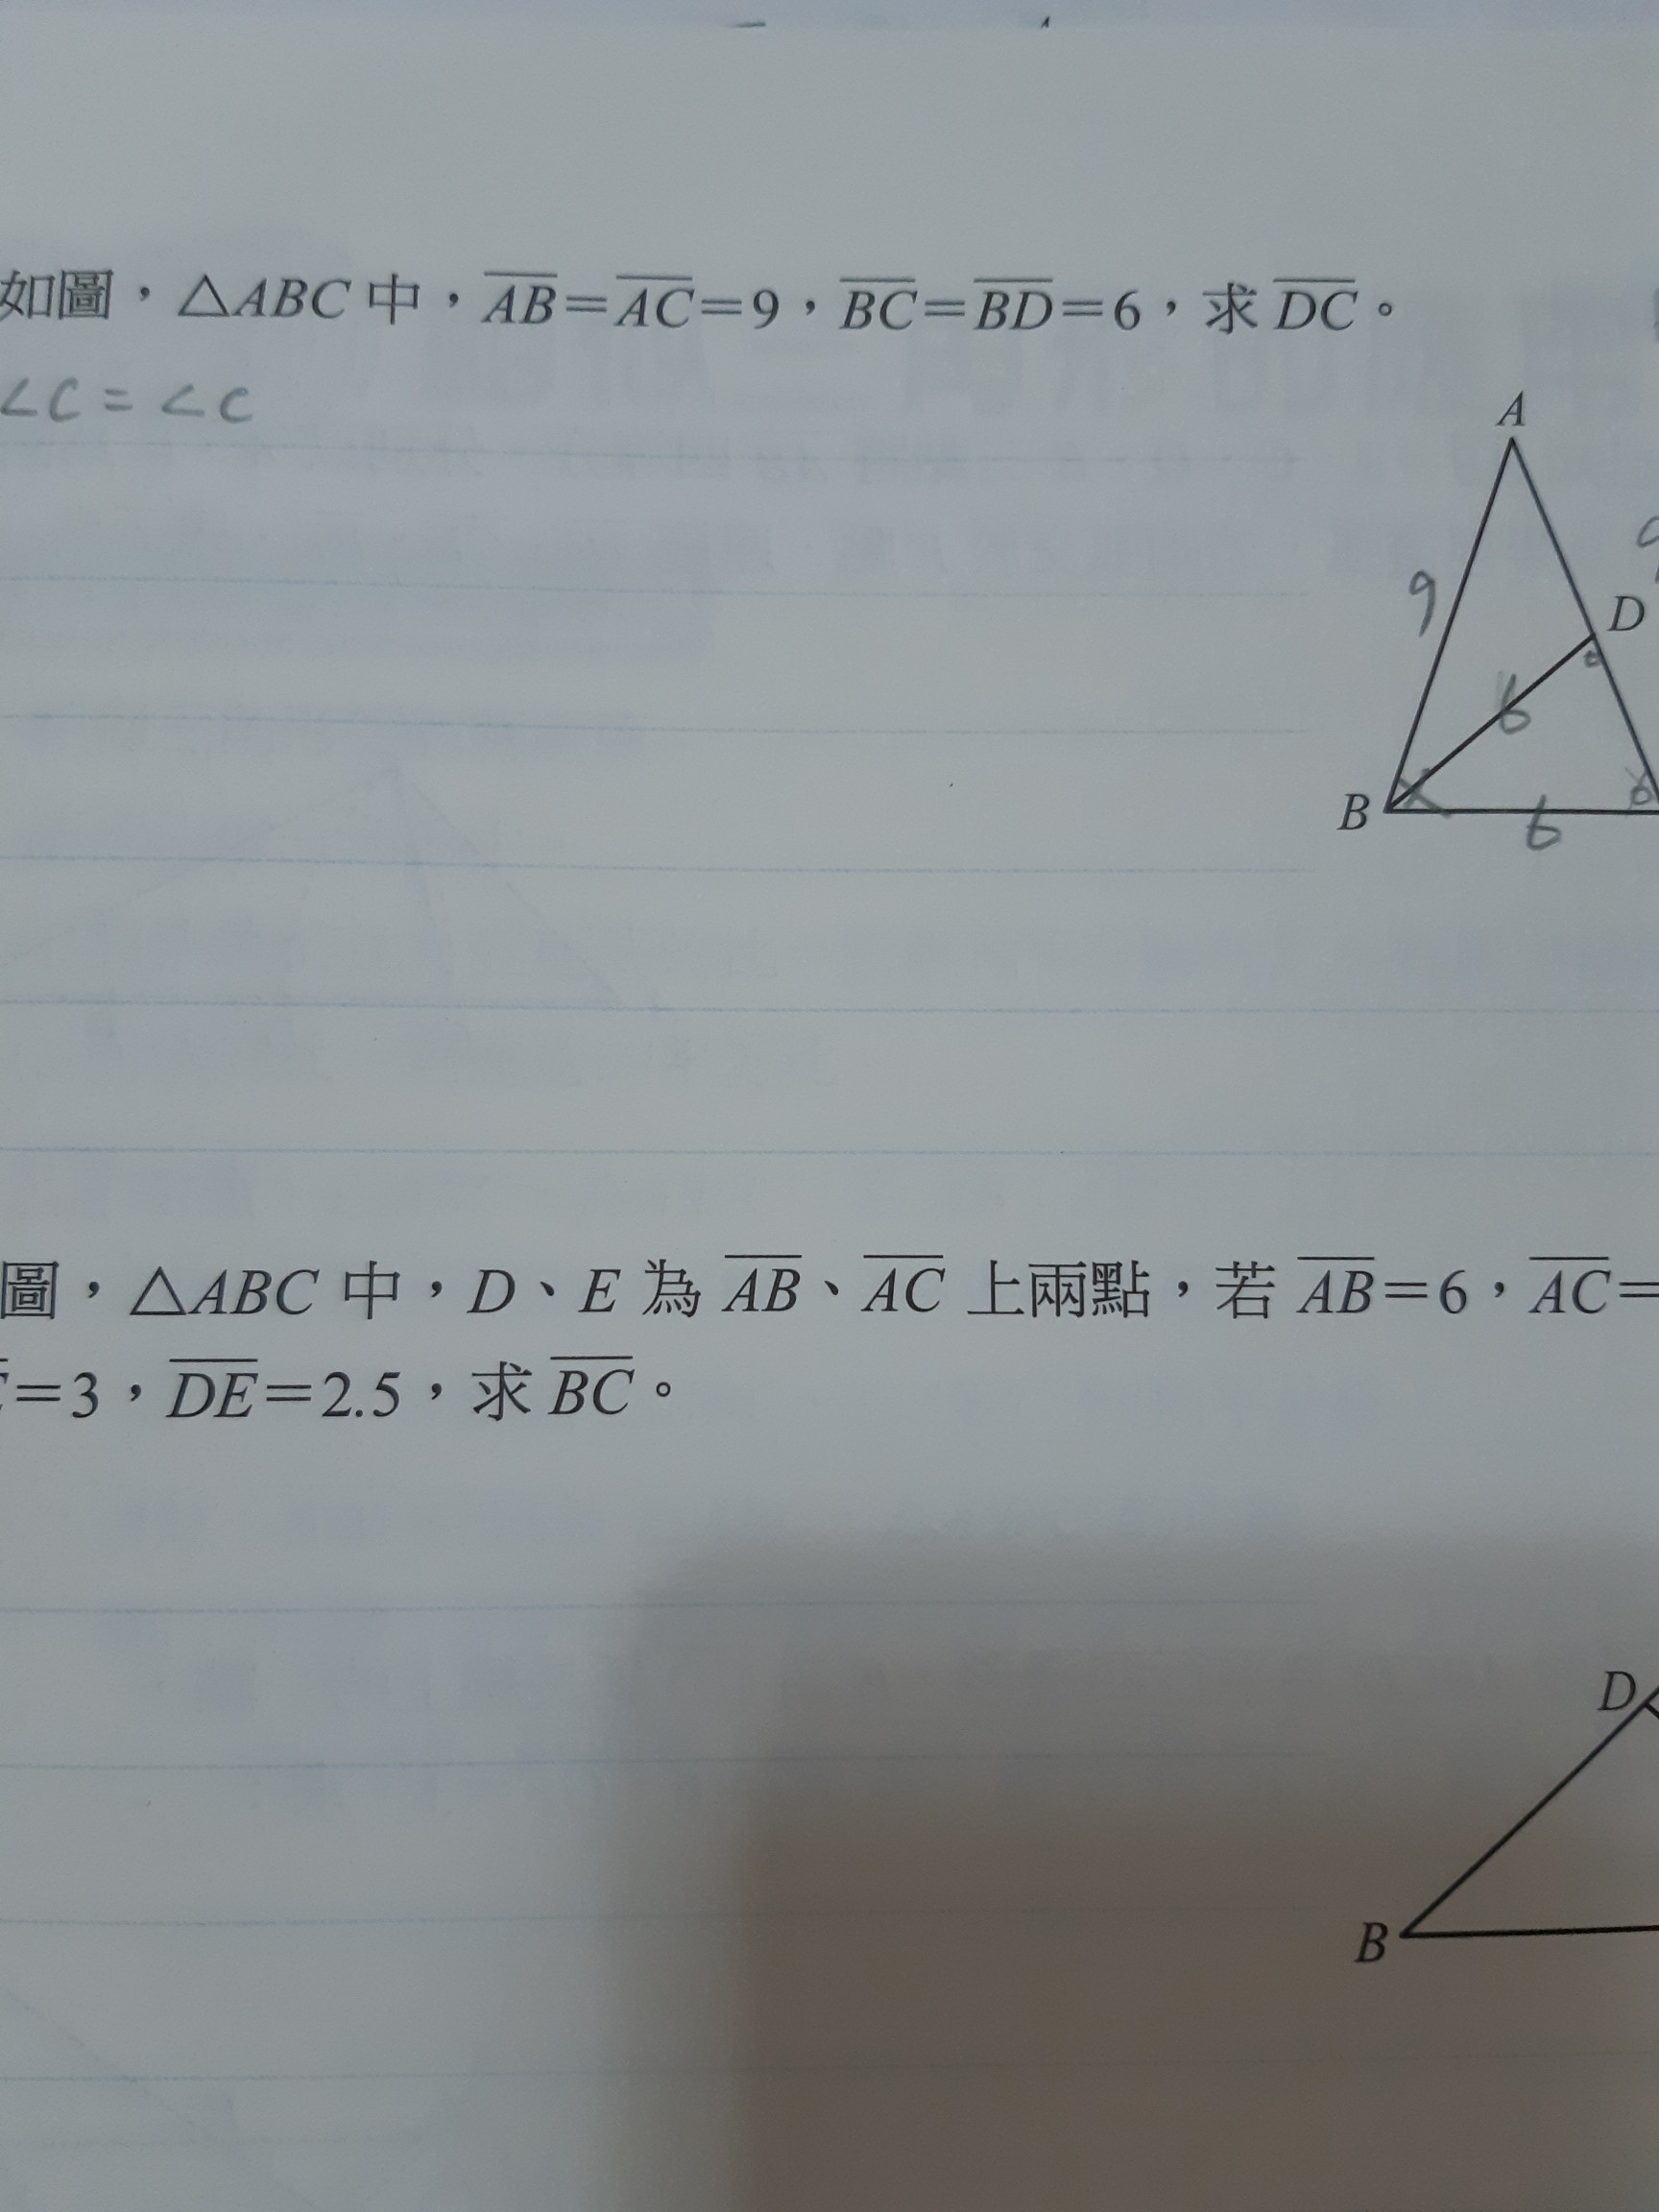 如圖，△ABC 中，AB=AC=9，BC=BD=6，求 DC。
∠C = ∠C
A
9
9
D
6
B
6
圖，△ABC 中，D、E 為 AB、AC 上兩點，若 AB=6，AC=
=3，DE=2.5，求 BC。
D
B